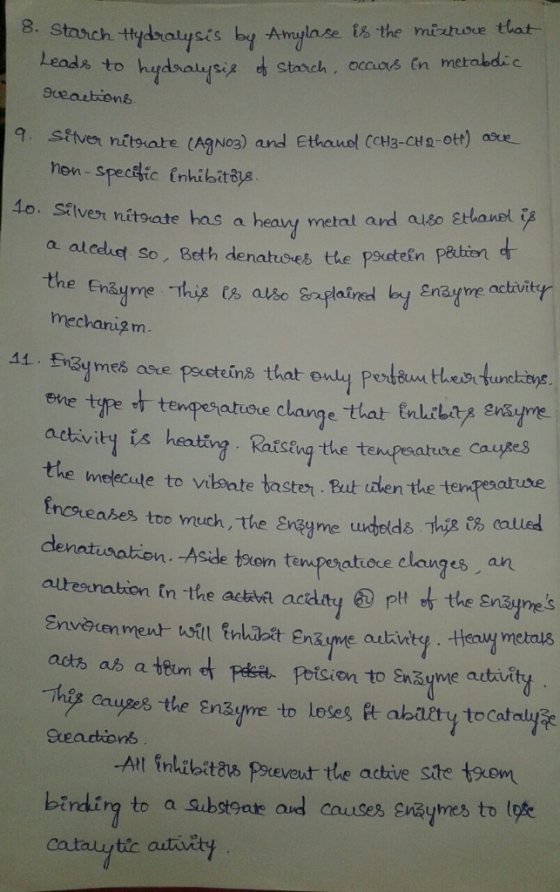 8. Starch Hydralysis by Amylase is the mixture that
Leads to hydralysis of starch, occurs in metabolic
reactions.
9. Silver nitrate (AgNO3) and Ethanol (CH3-CH2-OH) are
non-specific inhibitors.
10. Silver nitrate has a heavy metal and also Ethanol is
a alcohol so, Both denatures the protein portion of
the Enzyme. This is also Explained by Enzyme activity
mechanism.
11. Enzymes are proteins that only perform their functions.
one type of temperature change that inhibits Enzyme
activity is heating. Raising the temperature causes
the molecule to vibrate faster. But when the temperature
increases too much, the Enzyme unfolds. This is called
denaturation. Aside from temperature changes, an
alternation in the activit acidity or pH of the Enzyme's
Environment will inhibit Enzyme activity. Heavy metals
acts as a form of posit poision to Enzyme activity.
This causes the Enzyme to loses it ability to catalyze
reactions.
All inhibitors prevent the active site from
binding to a substrate and causes Enzymes to lose
catalytic activity.